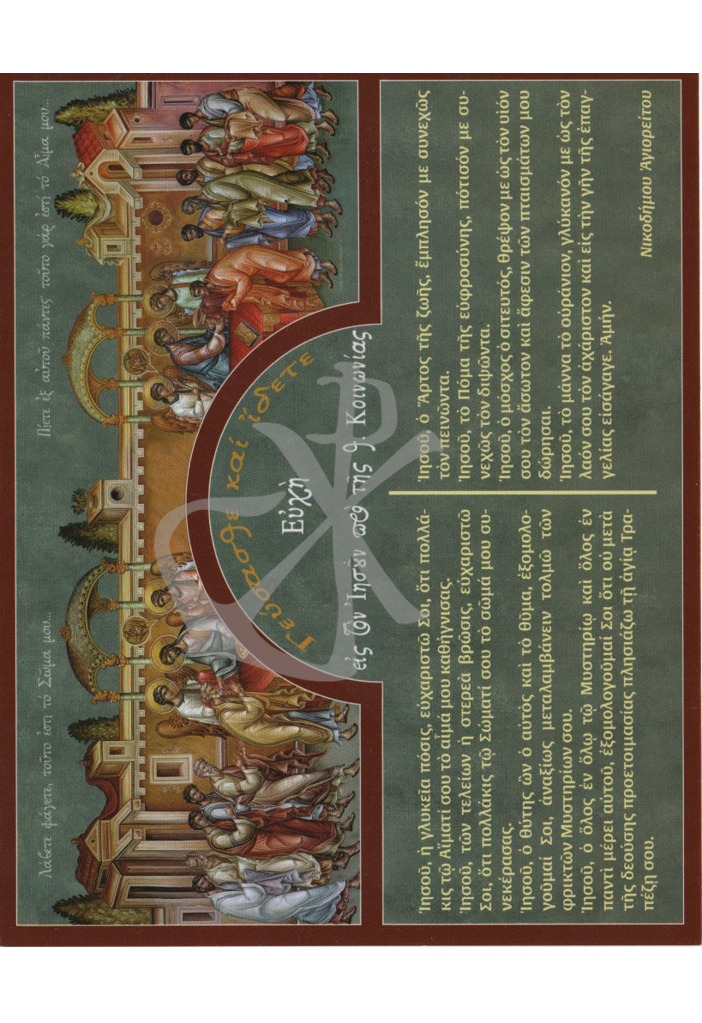 Λάβετε φάγετε, τοῦτο ἐστί τό Σῶμα μου...
Πίετε ἐξ αὐτοῦ πάντες τοῦτο γάρ ἐστί τό Αἷμα μου...
Γεύσασθε καί ἴδετε
Εὐχὴ
εἰς τὸν Ἰησοῦν πρὸ τῆς θ. Κοινωνίας
Ἰησοῦ, ἡ γλυκεῖα πόσις, εὐχαριστῶ Σοι, ὅτι πολλά-
κις τῷ Αἵματί σου τὸ αἷμά μου καθήγνισας.
Ἰησοῦ, τῶν τελείων ἡ στερεά βρῶσις, εὐχαριστῶ
Σοι, ὅτι πολλάκις τῷ Σώματί σου τὸ σῶμά μου συ-
νεκέρασας.
Ἰησοῦ, ὁ θύτης ὤν ὁ αὐτός καὶ τὸ θῦμα, ἐξομολο-
γοῦμαί Σοι, ἀναξίως μεταλαμβάνειν τολμῶ τῶν
φρικτῶν Μυστηρίων σου.
Ἰησοῦ, ὁ ὅλος ἐν ὅλῳ τῷ Μυστηρίῳ καὶ ὅλος ἐν
παντί μέρει αὐτοῦ, ἐξομολογοῦμαί Σοι ὅτι οὐ μετά
τῆς δεούσης προετοιμασίας πλησιάζω τῇ ἁγίᾳ Τρα-
πέζῃ σου.
Ἰησοῦ, ὁ Ἄρτος τῆς ζωῆς, ἔμπλησόν με συνεχῶς
τόν πεινῶντα.
Ἰησοῦ, τὸ Πόμα τῆς εὐφροσύνης, πότισόν με συ-
νεχῶς τὸν διψῶντα.
Ἰησοῦ, ὁ μόσχος ὁ σιτευτός, θρέψον με ὡς τὸν υἱόν
σου τὸν ἄσωτον καὶ ἄφεσιν τῶν πταισμάτων μου
δώρησαι.
Ἰησοῦ, τὸ μάννα τὸ οὐράνιον, γλύκανόν με ὡς τὸν
λαόν σου τὸν ἀχάριστον καὶ εἰς τὴν γῆν τῆς ἐπαγ-
γελίας εἰσάγαγε. Ἀμήν.
Νικοδήμου Ἁγιορείτου